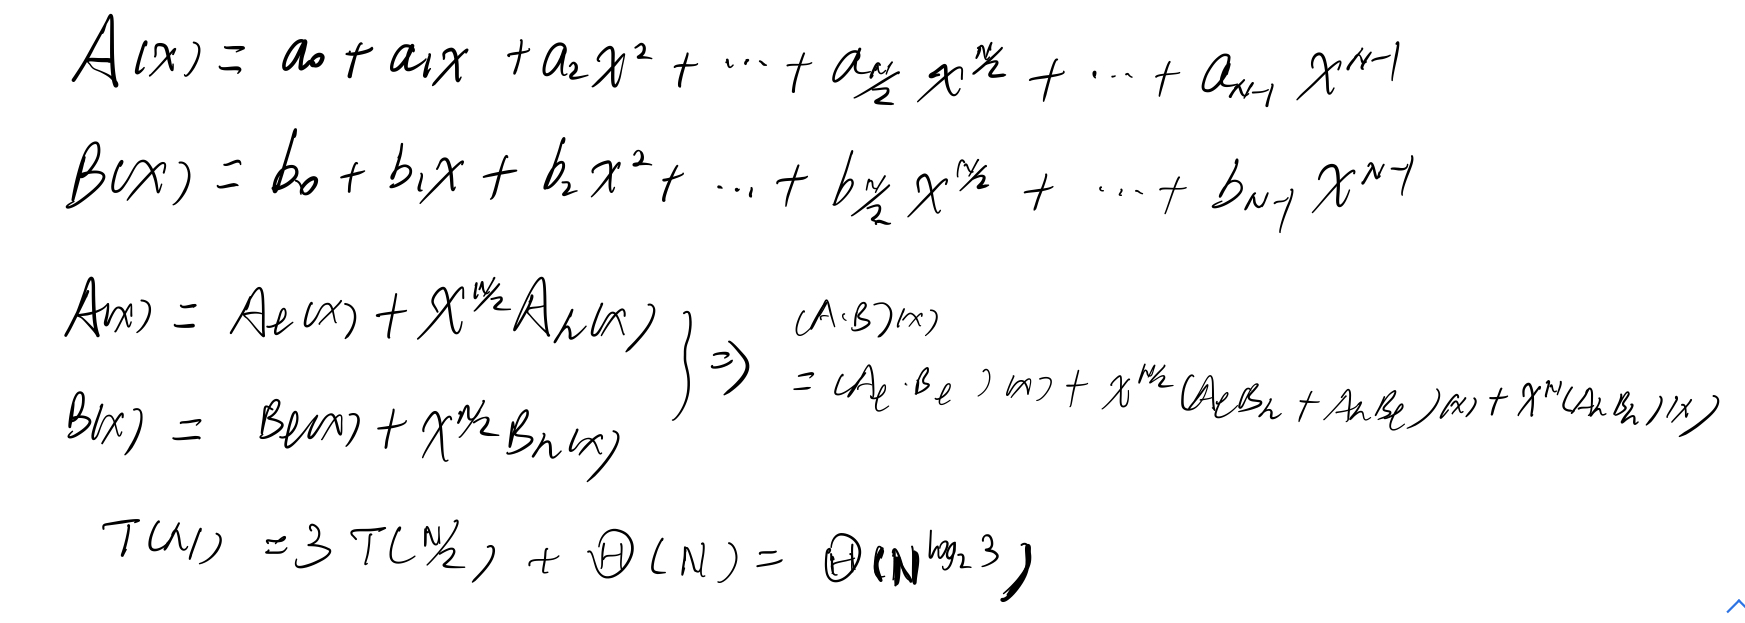 A(x) = a₀ + a₁x + a₂x² + ... + a_{N/2} x^{N/2} + ... + a_{N-1} x^{N-1}
B(x) = b₀ + b₁x + b₂x² + ... + b_{N/2} x^{N/2} + ... + b_{N-1} x^{N-1}
A(x) = A_ℓ(x) + x^{N/2} A_h(x)
B(x) = B_ℓ(x) + x^{N/2} B_h(x)
} ⇒ (A·B)(x)
= (A_ℓ·B_ℓ)(x) + x^{N/2} (A_ℓB_h + A_hB_ℓ)(x) + x^N (A_hB_h)(x)
T(N) = 3T(N/2) + Θ(N) = Θ(N^{log₂3})